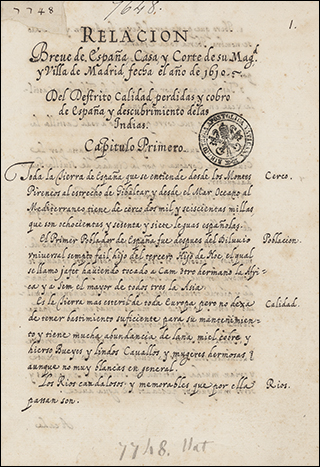 7748
7648.
1.
RELACION
Breve de España Casa y Corte de su Mag.d
y Villa de Madrid fecha el año de 1630.
Del Destrito Calidad perdidas y cobro
de España y descubrimiento de las
Indias.
Capitulo Primero.
Toda la tierra de España que se entiende desde los Montes
Cerco.
Pireneos al estrecho de Gibaltar y desde el Mar Oceano al
Mediterraneo tiene de cerco dos mil y seiscientas millas
que son ochocientas y sesenta y siete leguas españolas.
El Primer Poblador de España fue despues del Diluvio
Poblacion.
vniuersal Jafet hijo del tercero hijo de Noe, el qual
se llamo Jafet hauiendo tocado a Cam otro hermano la Afri-
ca y a Sem el mayor de todos tres la Asia.
Es la tierra mas esteril de toda Europa pero no dexa
Calidad.
de tener bastimento suficiente para su mantenimien-
to y tiene mucha abundancia de lana, miel, cobre y
hierro Bueyes y lindos Cauallos y mugeres hermosas,
aunque no muy blancas en general.
Los Rios caudalosos y memorables que por ella
Rios.
passan son.
7748. Hat